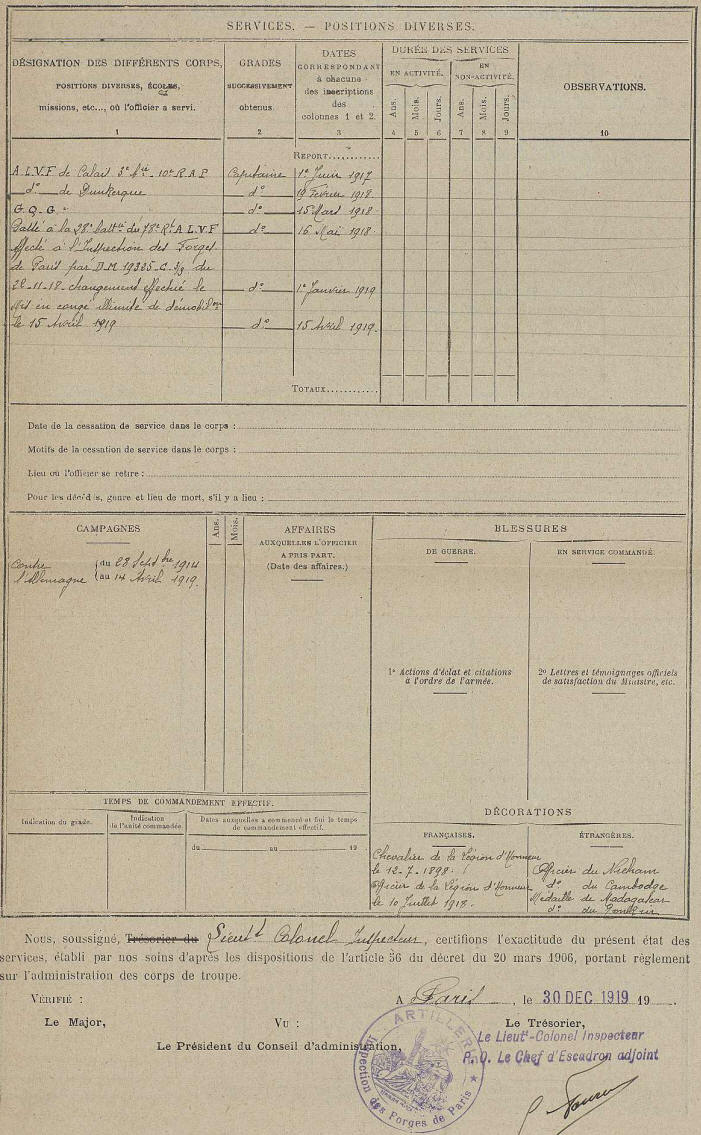 SERVICES. — POSITIONS DIVERSES.
DÉSIGNATION DES DIFFÉRENTS CORPS,
POSITIONS DIVERSES, ÉCOLES,
missions, etc..., où l'officier a servi.
1
GRADES
SUCCESSIVEMENT
obtenus.
2
DATES
CORRESPONDANT
à chacune
des inscriptions
des
colonnes 1 et 2.
3
DURÉE DES SERVICES
EN ACTIVITÉ.
EN
NON-ACTIVITÉ.
Ans. Mois. Jours. Ans. Mois. Jours.
4 5 6 7 8 9
OBSERVATIONS.
10
REPORT............
A.L.V.F de Calais 3e bie 10e R.A.P Capitaine 1er Juin 1917
do de Dunkerque do 19 Février 1918.
G.Q.G. do 15 Mars 1918
Passé à la 28e battie du 78e Rt A.L.V.F do 16 Mai 1918
affecté à l'Inspection des Forges
de Paris par D.M 19335-C.3/3 du
28-11-18. changement effectué le do 1er Janvier 1919
Mis en congé illimité de démobilon
le 15 Avril 1919 do 15 Avril 1919.
TOTAUX............
Date de la cessation de service dans le corps :
Motifs de la cessation de service dans le corps :
Lieu où l'officier se retire :
Pour les décédés, genre et lieu de mort, s'il y a lieu :
CAMPAGNES
Ans. Mois.
Contre l'Allemagne
(du 28 Septbre 1914
(au 14 Avril 1919.
AFFAIRES
AUXQUELLES L'OFFICIER
A PRIS PART.
(Date des affaires.)
BLESSURES
DE GUERRE.
EN SERVICE COMMANDÉ.
1° Actions d'éclat et citations
à l'ordre de l'armée.
2° Lettres et témoignages officiels
de satisfaction du Ministre, etc.
TEMPS DE COMMANDEMENT EFFECTIF.
Indication du grade.
Indication
de l'unité commandée.
Dates auxquelles a commencé et fini le temps
de commandement effectif.
du au 19
DÉCORATIONS
FRANÇAISES.
Chevalier de la Légion d'Honneur
le 12-7-1898.
Officier de la Légion d'Honneur
le 10 Juillet 1918.
ÉTRANGÈRES.
Officier du Nicham
do du Cambodge
Médaille de Madagascar
do du Tonkin
Nous, soussigné, Trésorier du Lieutt Colonel Inspecteur, certifions l'exactitude du présent état des
services, établi par nos soins d'après les dispositions de l'article 56 du décret du 20 mars 1906, portant règlement
sur l'administration des corps de troupe.
VÉRIFIÉ :
A Paris, le 30 DEC 1919 19
Le Major,
Vu :
Le Président du Conseil d'administration,
Le Trésorier,
Le Lieutt-Colonel Inspecteur
P.O. Le Chef d'Escadron adjoint
ARTILLERIE
Inspection des Forges de Paris